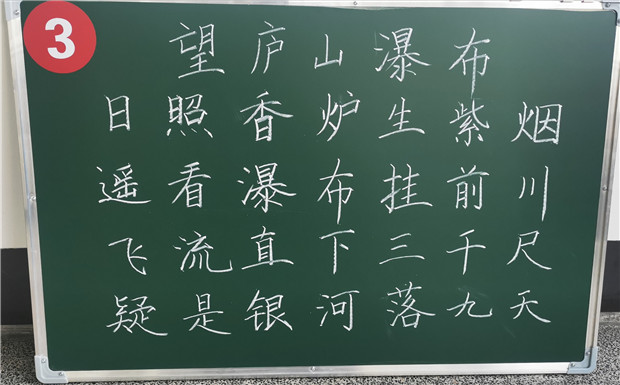 3
望庐山瀑布
日照香炉生紫烟
遥看瀑布挂前川
飞流直下三千尺
疑是银河落九天